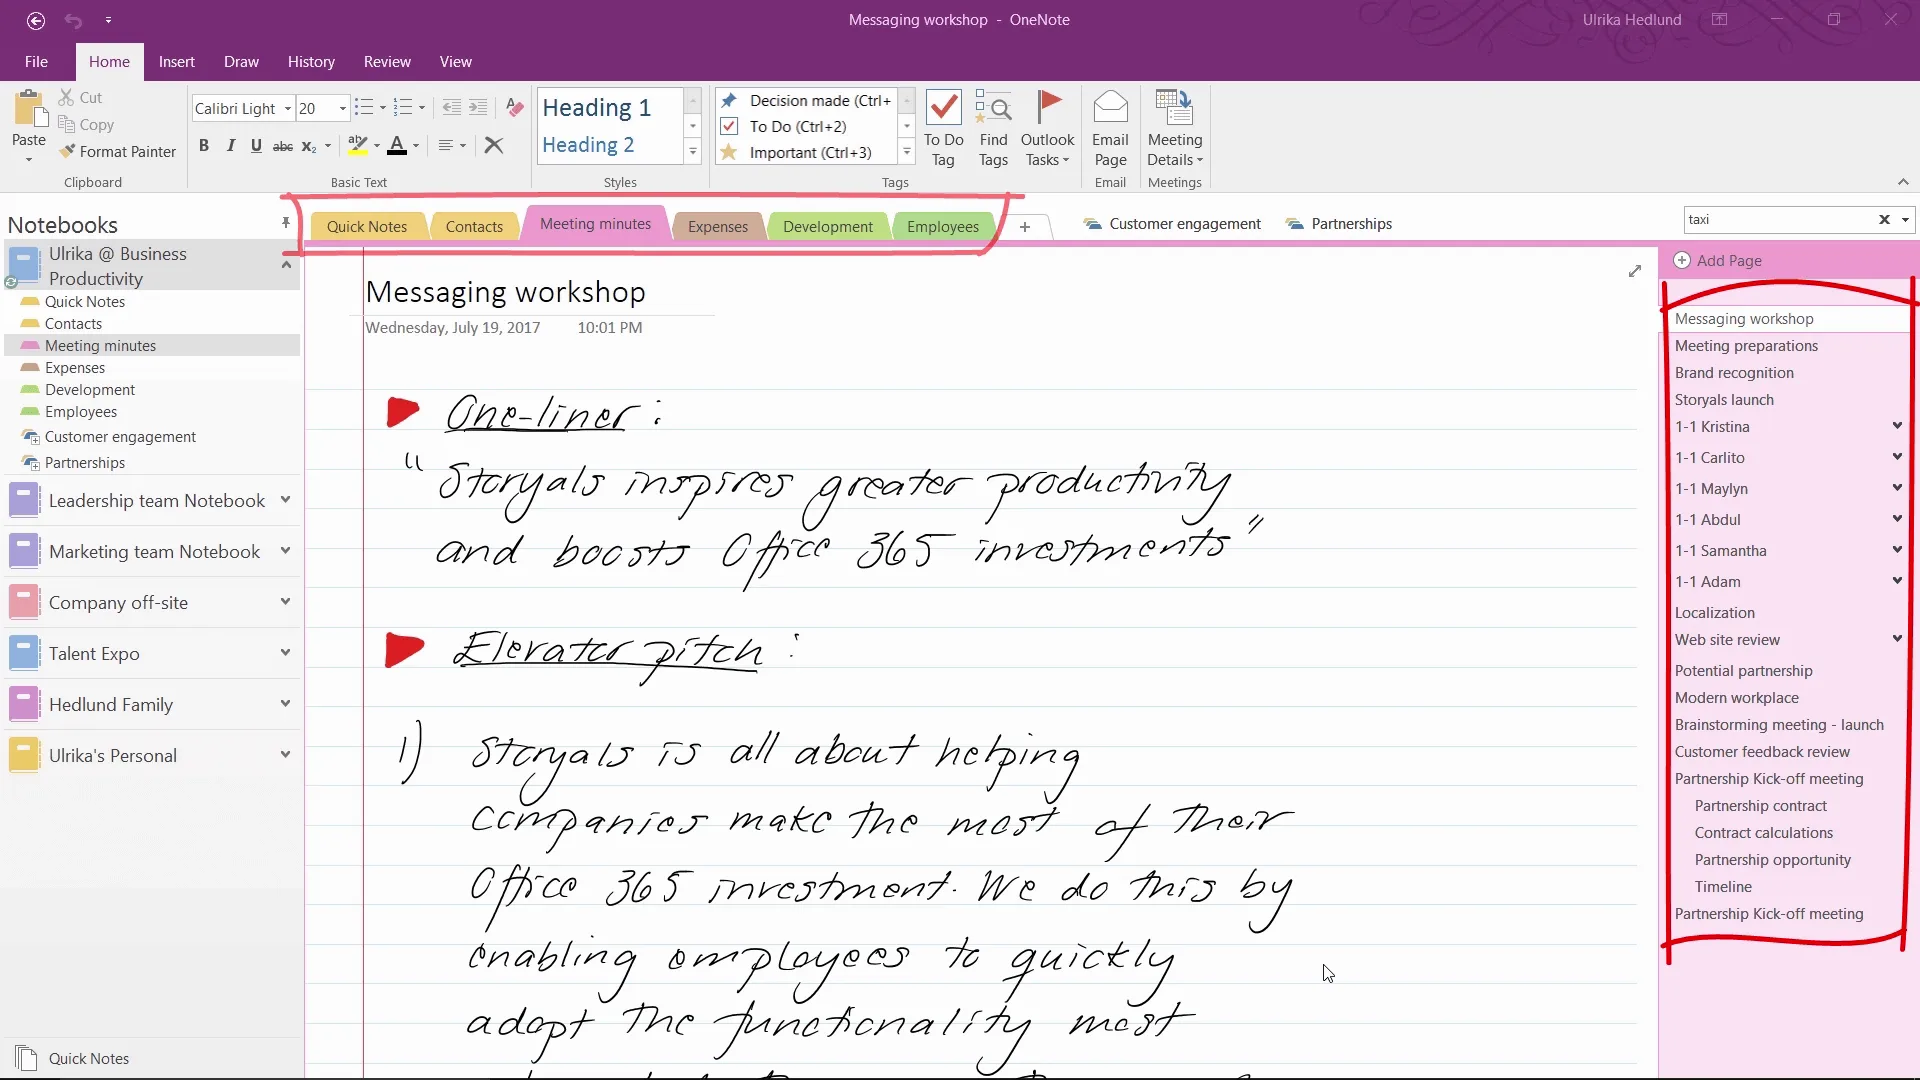 Messaging workshop - OneNote
Ulrika Hedlund
File Home Insert Draw History Review View
Paste
Cut
Copy
Format Painter
Clipboard
Calibri Light 20
B I U abc x₂ A
Basic Text
Heading 1
Heading 2
Styles
Decision made (Ctrl+
To Do (Ctrl+2)
Important (Ctrl+3)
To Do Tag
Find Tags
Outlook Tasks
Tags
Email Page
Email
Meeting Details
Meetings
Notebooks
Ulrika @ Business
Productivity
Quick Notes
Contacts
Meeting minutes
Expenses
Development
Employees
Customer engagement
Partnerships
Leadership team Notebook
Marketing team Notebook
Company off-site
Talent Expo
Hedlund Family
Ulrika's Personal
Quick Notes
Quick Notes Contacts Meeting minutes Expenses Development Employees + Customer engagement Partnerships
taxi
Messaging workshop
Wednesday, July 19, 2017 10:01 PM
One-liner :
"Storyals inspires greater productivity
and boosts Office 365 investments"
Elevator pitch :
1) Storyals is all about helping
companies make the most of their
Office 365 investment. We do this by
enabling employees to quickly
adopt the functionality most
Add Page
Messaging workshop
Meeting preparations
Brand recognition
Storyals launch
1-1 Kristina
1-1 Carlito
1-1 Maylyn
1-1 Abdul
1-1 Samantha
1-1 Adam
Localization
Web site review
Potential partnership
Modern workplace
Brainstorming meeting - launch
Customer feedback review
Partnership Kick-off meeting
Partnership contract
Contract calculations
Partnership opportunity
Timeline
Partnership Kick-off meeting